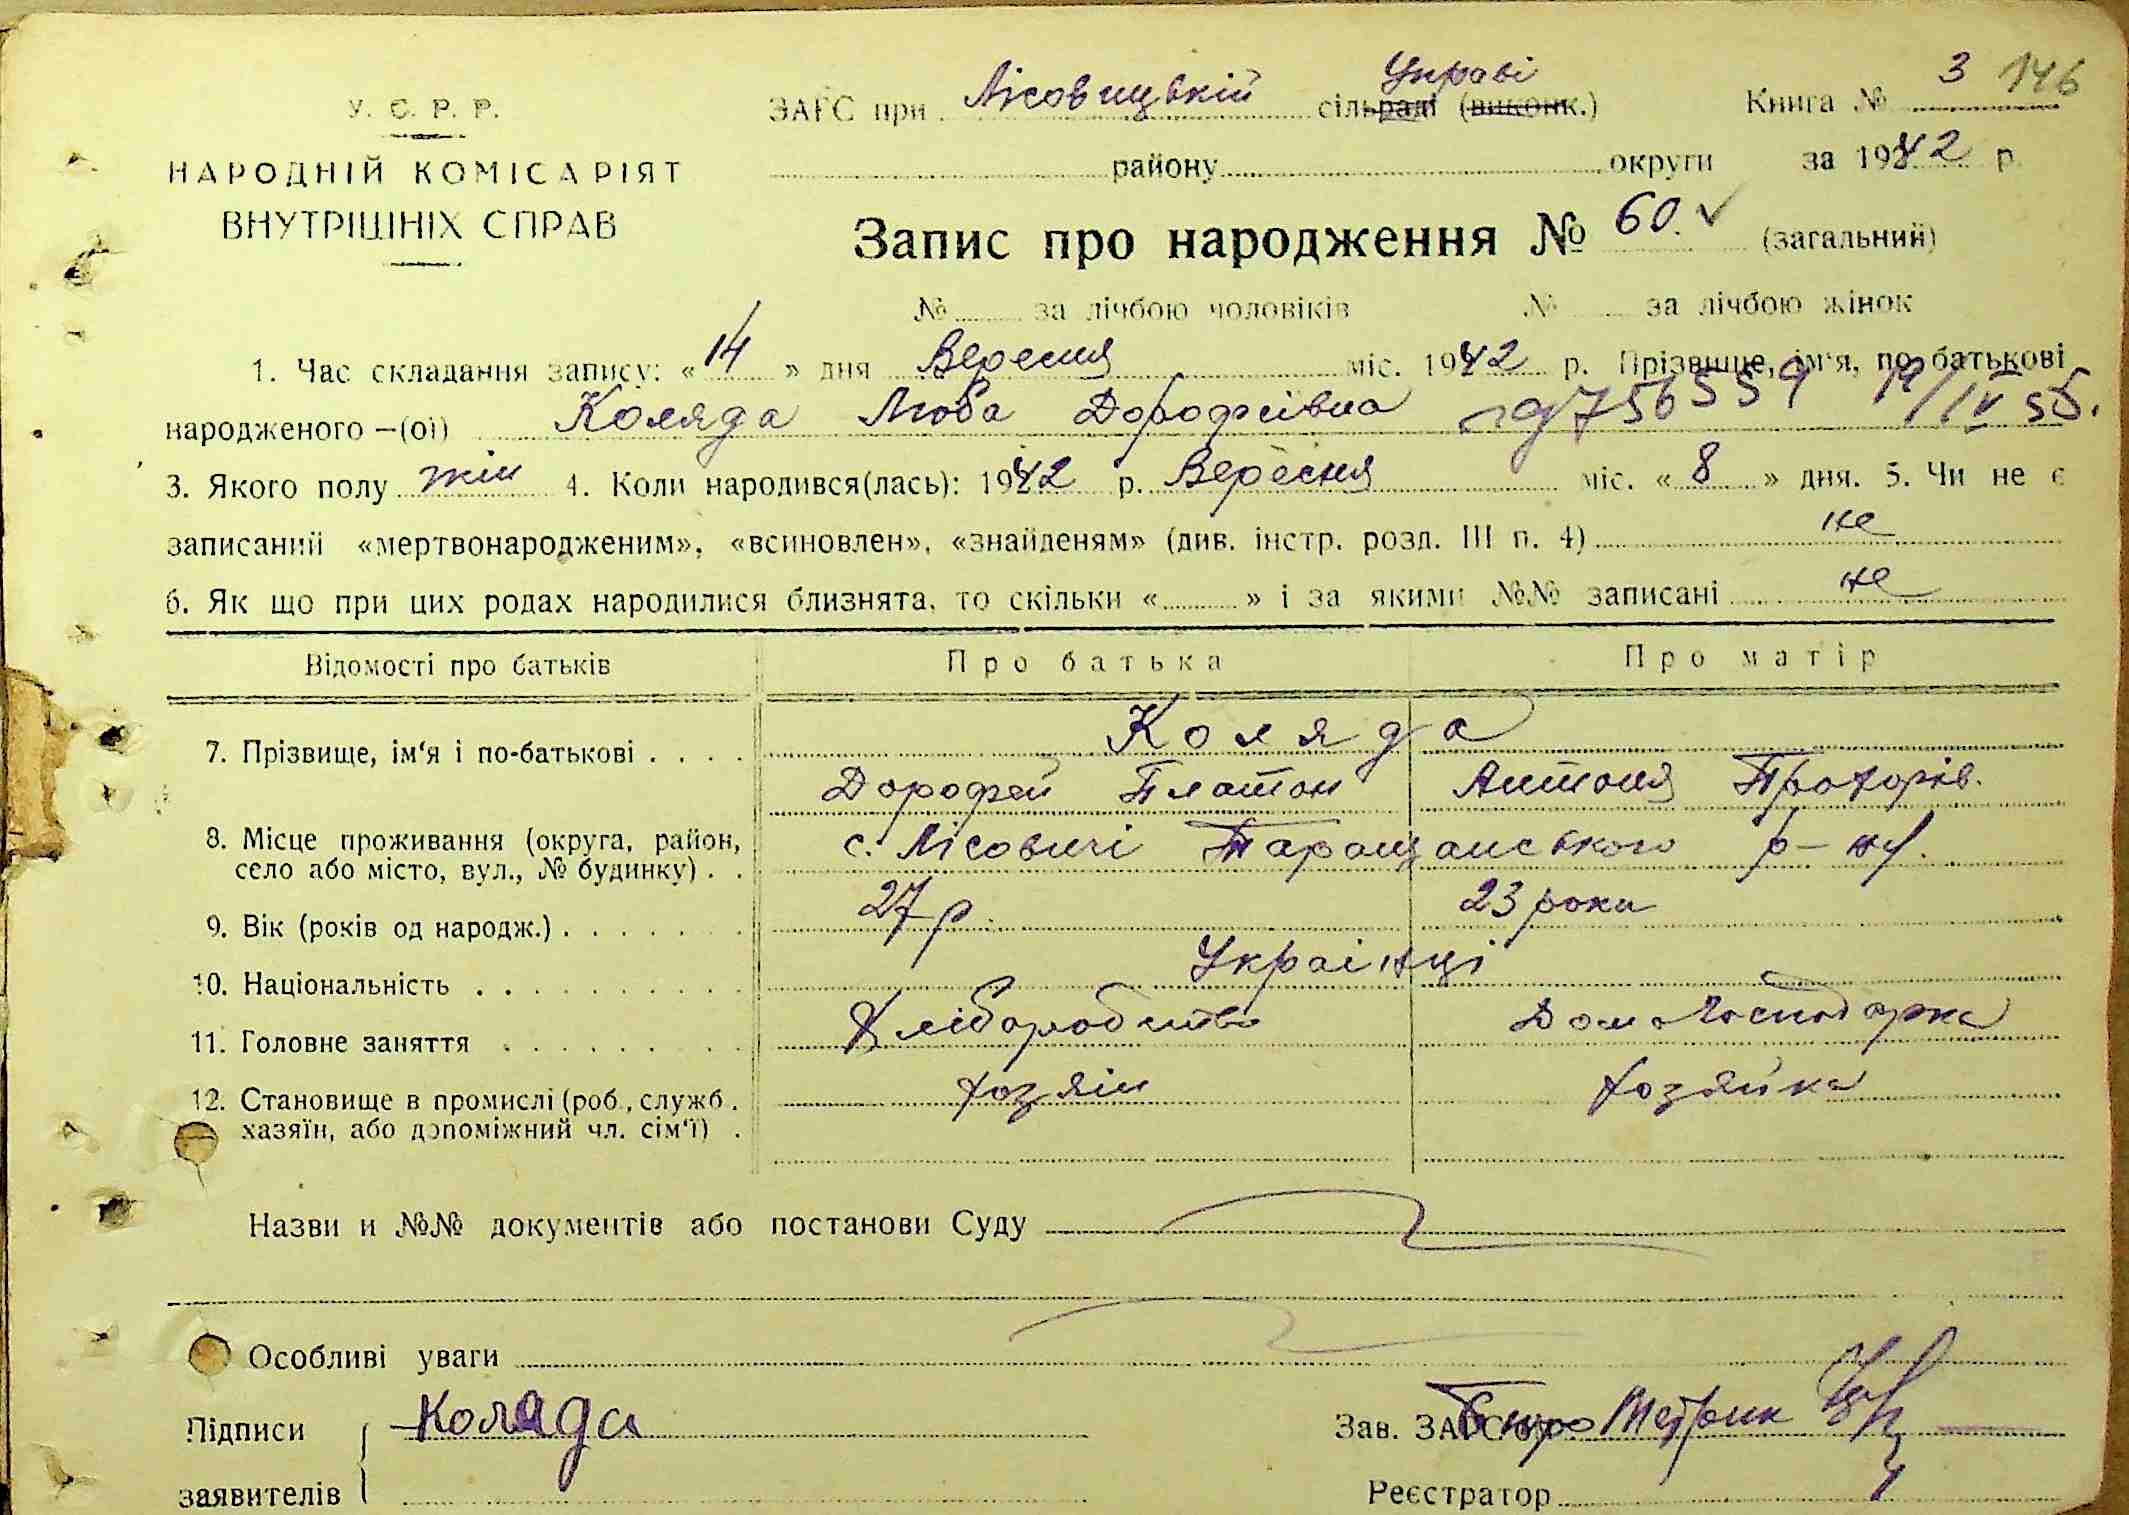 У. С. Р. Р.
НАРОДНІЙ КОМІСАРІЯТ
ВНУТРІШНІХ СПРАВ
ЗАГС при Лісовицькій сільраді (виконк.) Управі
Книга № 3 146
району округи за 1942 р.
Запис про народження № 60. (загальний)
№ за лічбою чоловіків № за лічбою жінок
1. Час складання запису: « 14 » дня Вересня міс. 1942 р. Прізвище, ім'я, по батькові
народженого —(ої) Коляда Люба Дорофеївна 756559 19/IV 55.
3. Якого полу жін 4. Коли народився(лась): 1942 р. Вересня міс. « 8 » дня. 5. Чи не є
записаний «мертвонародженим», «всиновлен», «знайденям» (див. інстр. розд. III п. 4) не
6. Як що при цих родах народилися близнята, то скільки « » і за якими №№ записані не
Відомості про батьків Про батька Про матір
7. Прізвище, ім'я і по-батькові Коляда
Дорофей Платон Антоня Прохорів.
8. Місце проживання (округа, район, с. Лісовичі Таращанського р-ну.
село або місто, вул., № будинку)
9. Вік (років од народж.) 27 р. 23 роки
10. Національність Українці
11. Головне заняття Хліборобство Домогосподарка
12. Становище в промислі (роб., служб. хозяін хозяйка
хазяїн, або допоміжний чл. сім'ї)
Назви и №№ документів або постанови Суду
Особливі уваги
Підписи Коляда Зав. ЗАГСом Бюро Метрик
заявителів Реєстратор